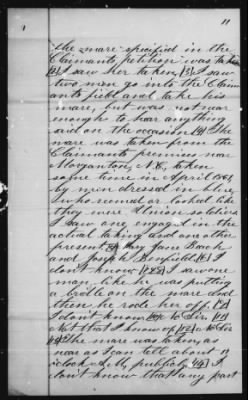 11
the mare specified in the
Claimants petition was taken
[2] I saw her taken, [3] I saw
two men go into the Claim
ants field and take his
mare, but was not near
enough to hear anything
said on the occasion [4] The
mare was taken from the
Claimants premises near
Morganton, N.C., taken
some time in April 1865,
by men dressed in blue,
who seemed or looked like
they were Union soldiers
I saw one engaged in the
actual taking and one other
present, Mary Jane Beach
and Joseph Benfield [6] I
don't know I saw one
man like he was putting
a bridle on the mare and
then he rode her off.
I don't know No Sir. [11]
Not that I know of [12] No Sir
The mare was taken as
near as I can tell about 10
o'clock A.M., publicly [14] I
don't know that any part